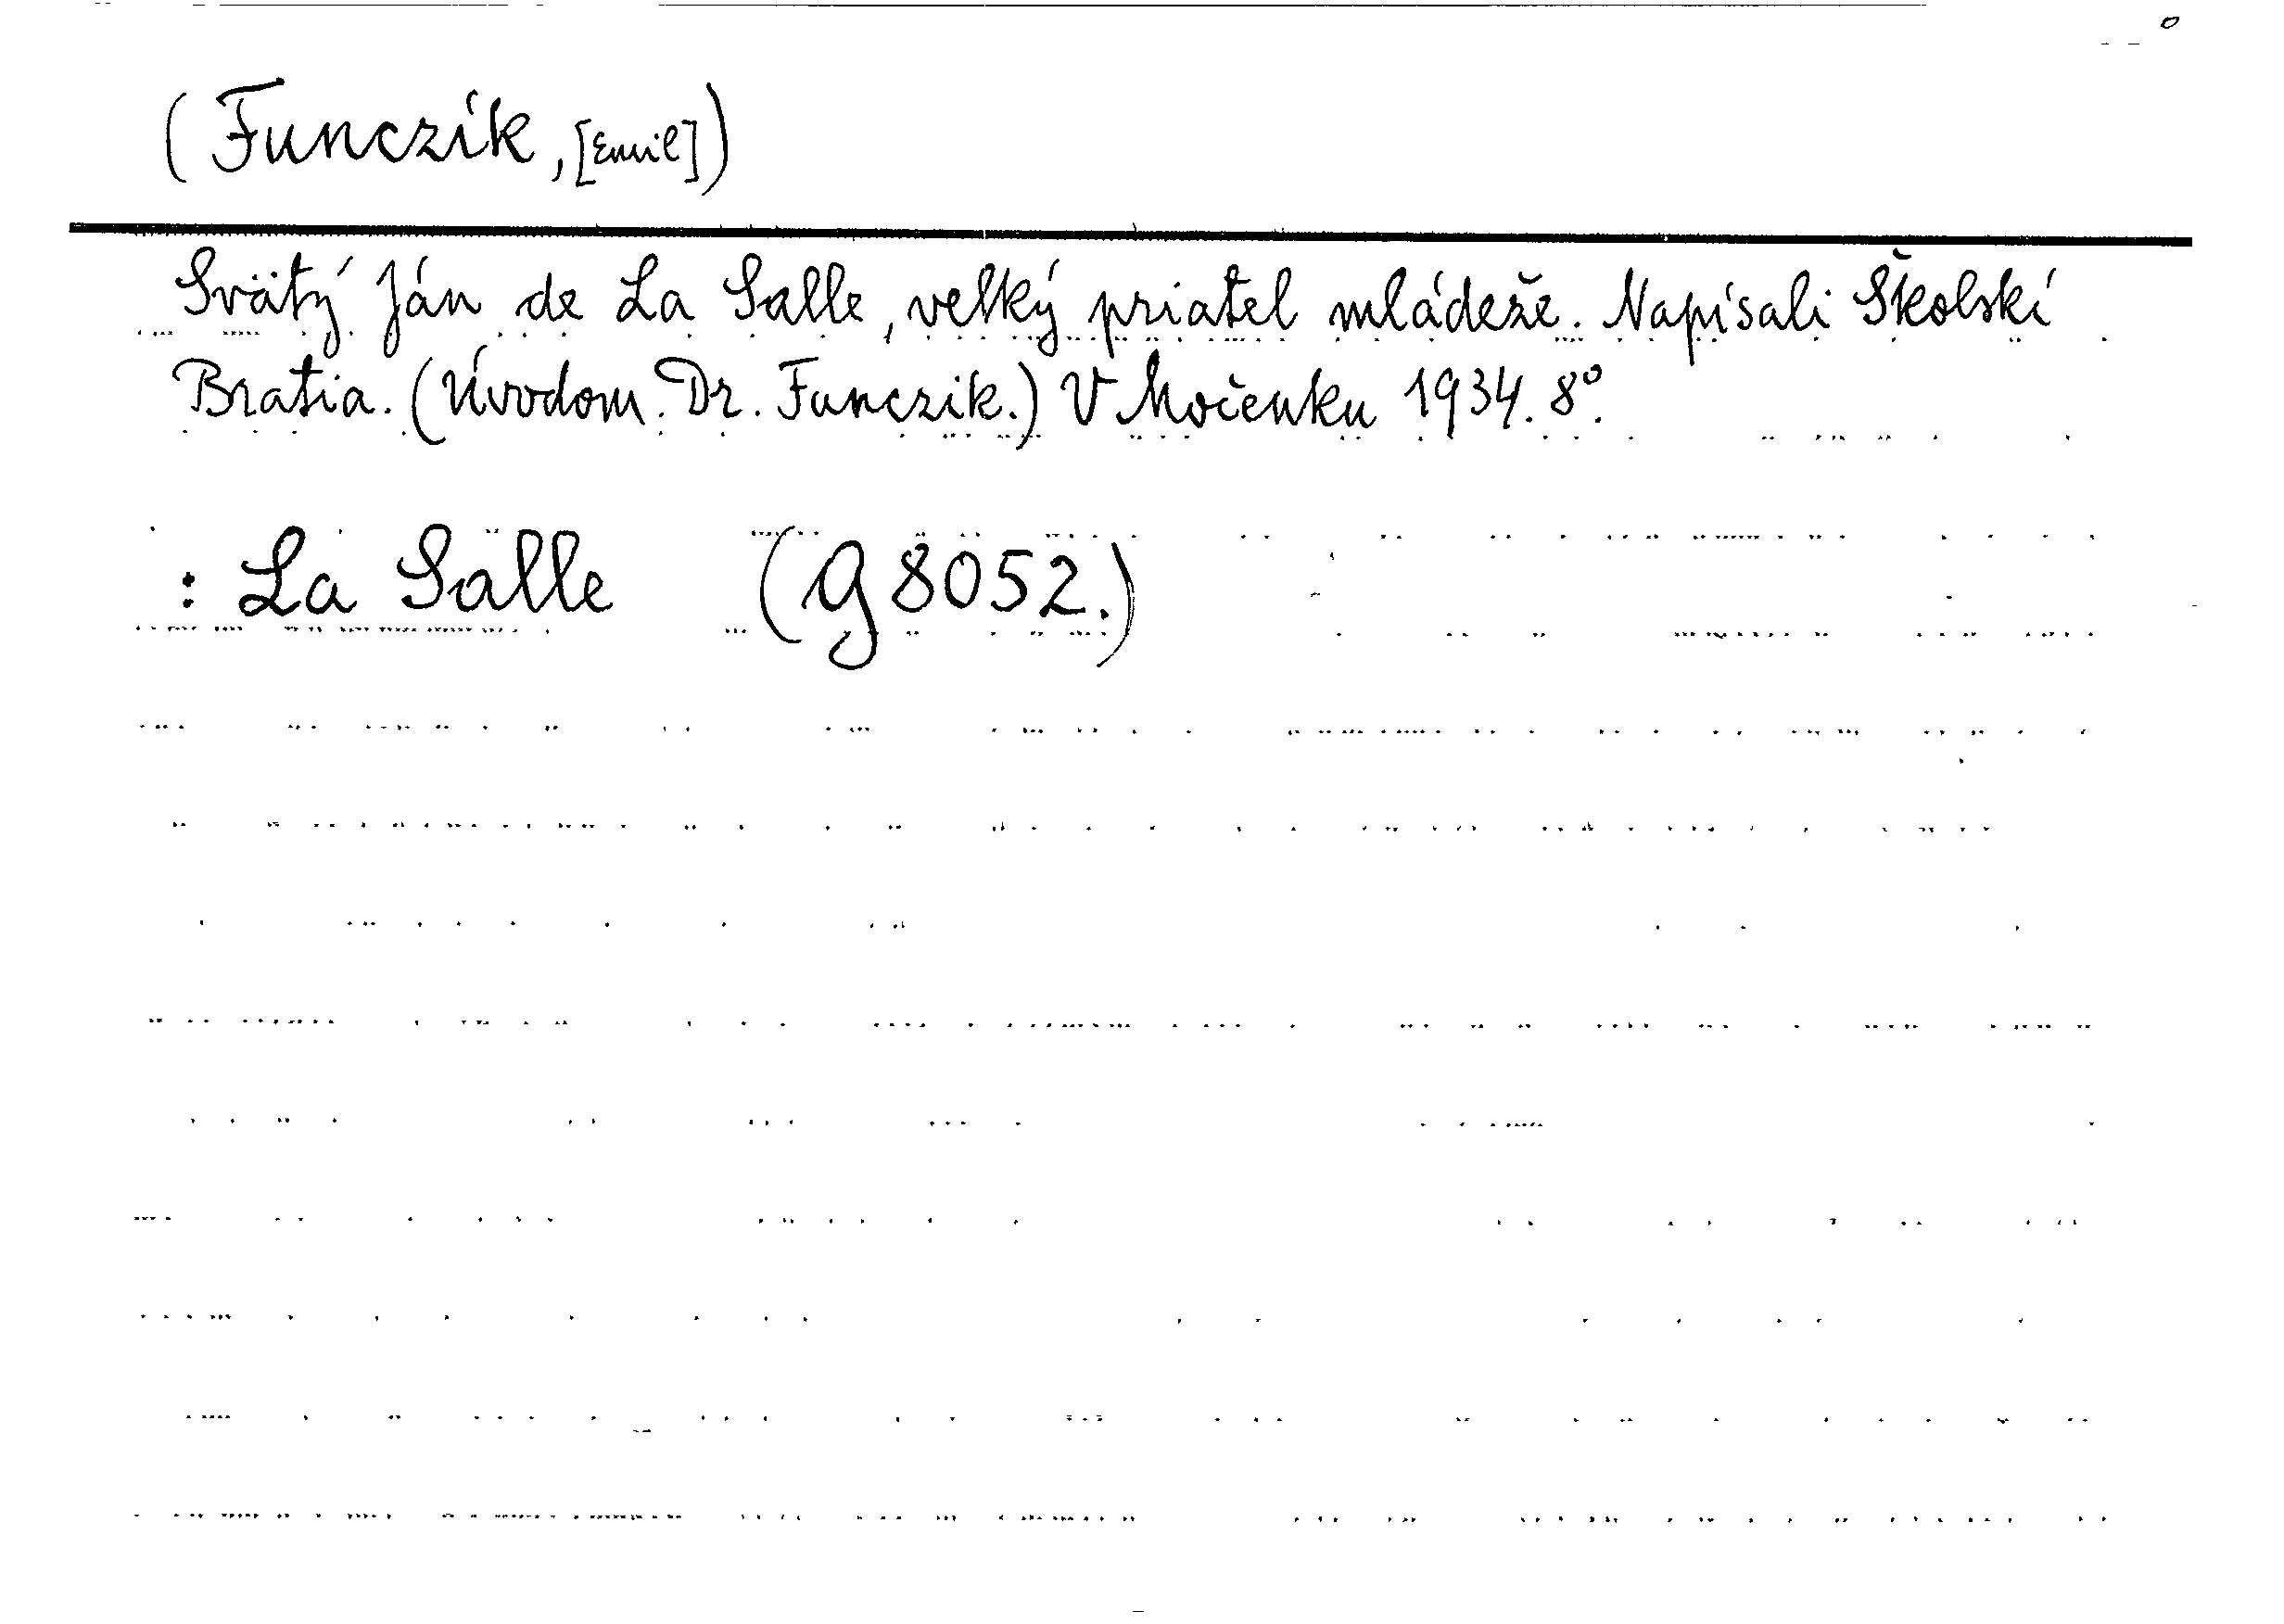 (Funczík, [Emil])
Svätý Ján de La Salle, velký priatel mládeže. Napísali Školskí
Bratia. (Úvodom. Dr. Funczik.) V Močenku 1934. 8°.
: La Salle (G 8052.)